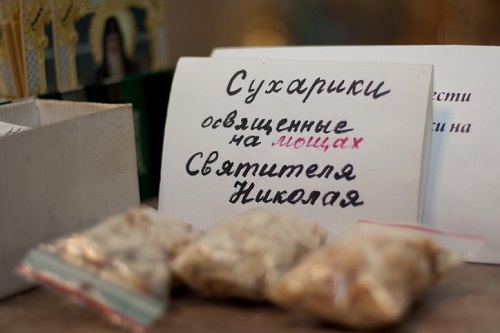 Сухарики
освященные
на мощах
Святителя
Николая